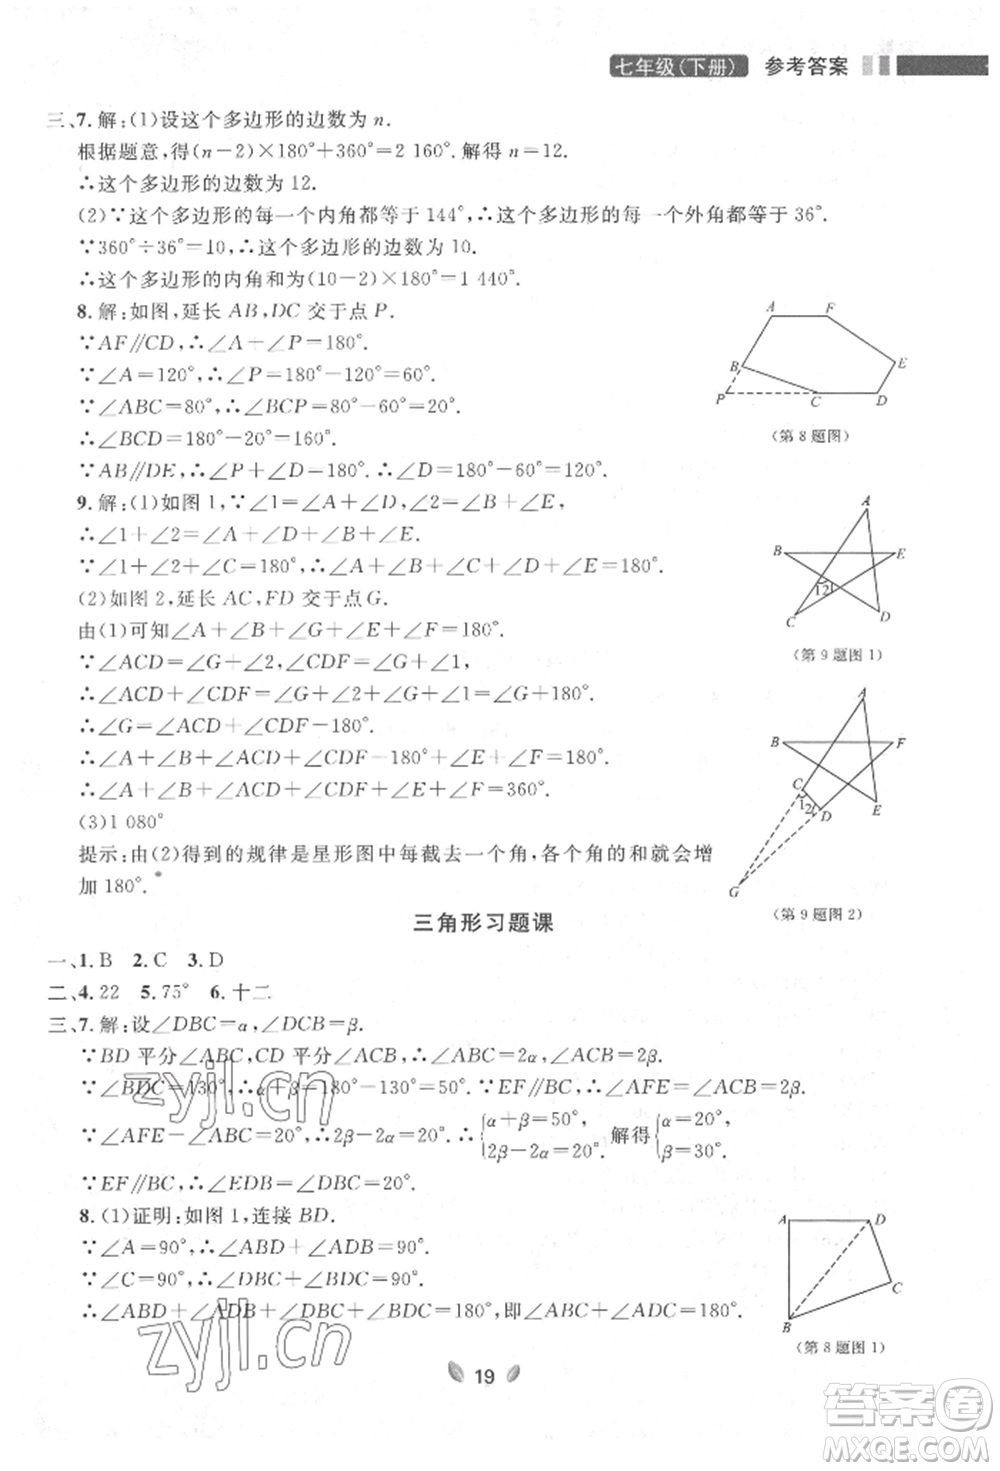 七年级(下册) 参考答案
三、7.解:(1)设这个多边形的边数为 n.
根据题意,得(n-2)×180°+360°=2 160°.解得 n=12.
∴这个多边形的边数为 12.
(2)∵这个多边形的每一个内角都等于 144°,∴这个多边形的每一个外角都等于 36°.
∵360°÷36°=10,∴这个多边形的边数为 10.
∴这个多边形的内角和为(10-2)×180°=1 440°.
8.解:如图,延长 AB,DC 交于点 P.
∵AF∥CD,∴∠A+∠P=180°.
∵∠A=120°,∴∠P=180°-120°=60°.
∵∠ABC=80°,∴∠BCP=80°-60°=20°.
∴∠BCD=180°-20°=160°.
∵AB∥DE,∴∠P+∠D=180°.∴∠D=180°-60°=120°.
A F B E P C D
(第 8 题图)
9.解:(1)如图 1,∵∠1=∠A+∠D,∠2=∠B+∠E,
∴∠1+∠2=∠A+∠D+∠B+∠E.
∵∠1+∠2+∠C=180°,∴∠A+∠B+∠C+∠D+∠E=180°.
(2)如图 2,延长 AC,FD 交于点 G.
由(1)可知∠A+∠B+∠G+∠E+∠F=180°.
∵∠ACD=∠G+∠2,∠CDF=∠G+∠1,
∴∠ACD+∠CDF=∠G+180°.
∴∠G=∠ACD+∠CDF-180°.
∴∠A+∠B+∠ACD+∠CDF-180°+∠E+∠F=180°.
∴∠A+∠B+∠ACD+∠CDF+∠E+∠F=360°.
(3)1 080°
提示:由(2)得到的规律是星形图中每截去一个角,各个角的和就会增
加 180°.
A B E 1 2 C D
(第 9 题图 1)
A B F C 1 2 D E G
(第 9 题图 2)
三角形习题课
一、1.B 2.C 3.D
二、4.22 5.75° 6.十二
三、7.解:设∠DBC=α,∠DCB=β.
∵BD 平分∠ABC,CD 平分∠ACB,∴∠ABC=2α,∠ACB=2β.
∵∠BDC=130°,∴α+β=180°-130°=50°.∵EF∥BC,∴∠AFE=∠ACB=2β.
∵∠AFE-∠ABC=20°,∴2β-2α=20°.∴{α+β=50°, 2β-2α=20°. 解得{α=20°, β=30°.
∵EF∥BC,∴∠EDB=∠DBC=α=20°.
8.(1)证明:如图 1,连接 BD.
∵∠A=90°,∴∠ABD+∠ADB=90°.
∵∠C=90°,∴∠DBC+∠BDC=90°.
∴∠ABD+∠ADB+∠DBC+∠BDC=180°,即∠ABC+∠ADC=180°.
A D C B
(第 8 题图 1)
19
zyjl.cn
zyjl.cn
答案卷
MXQE.COM